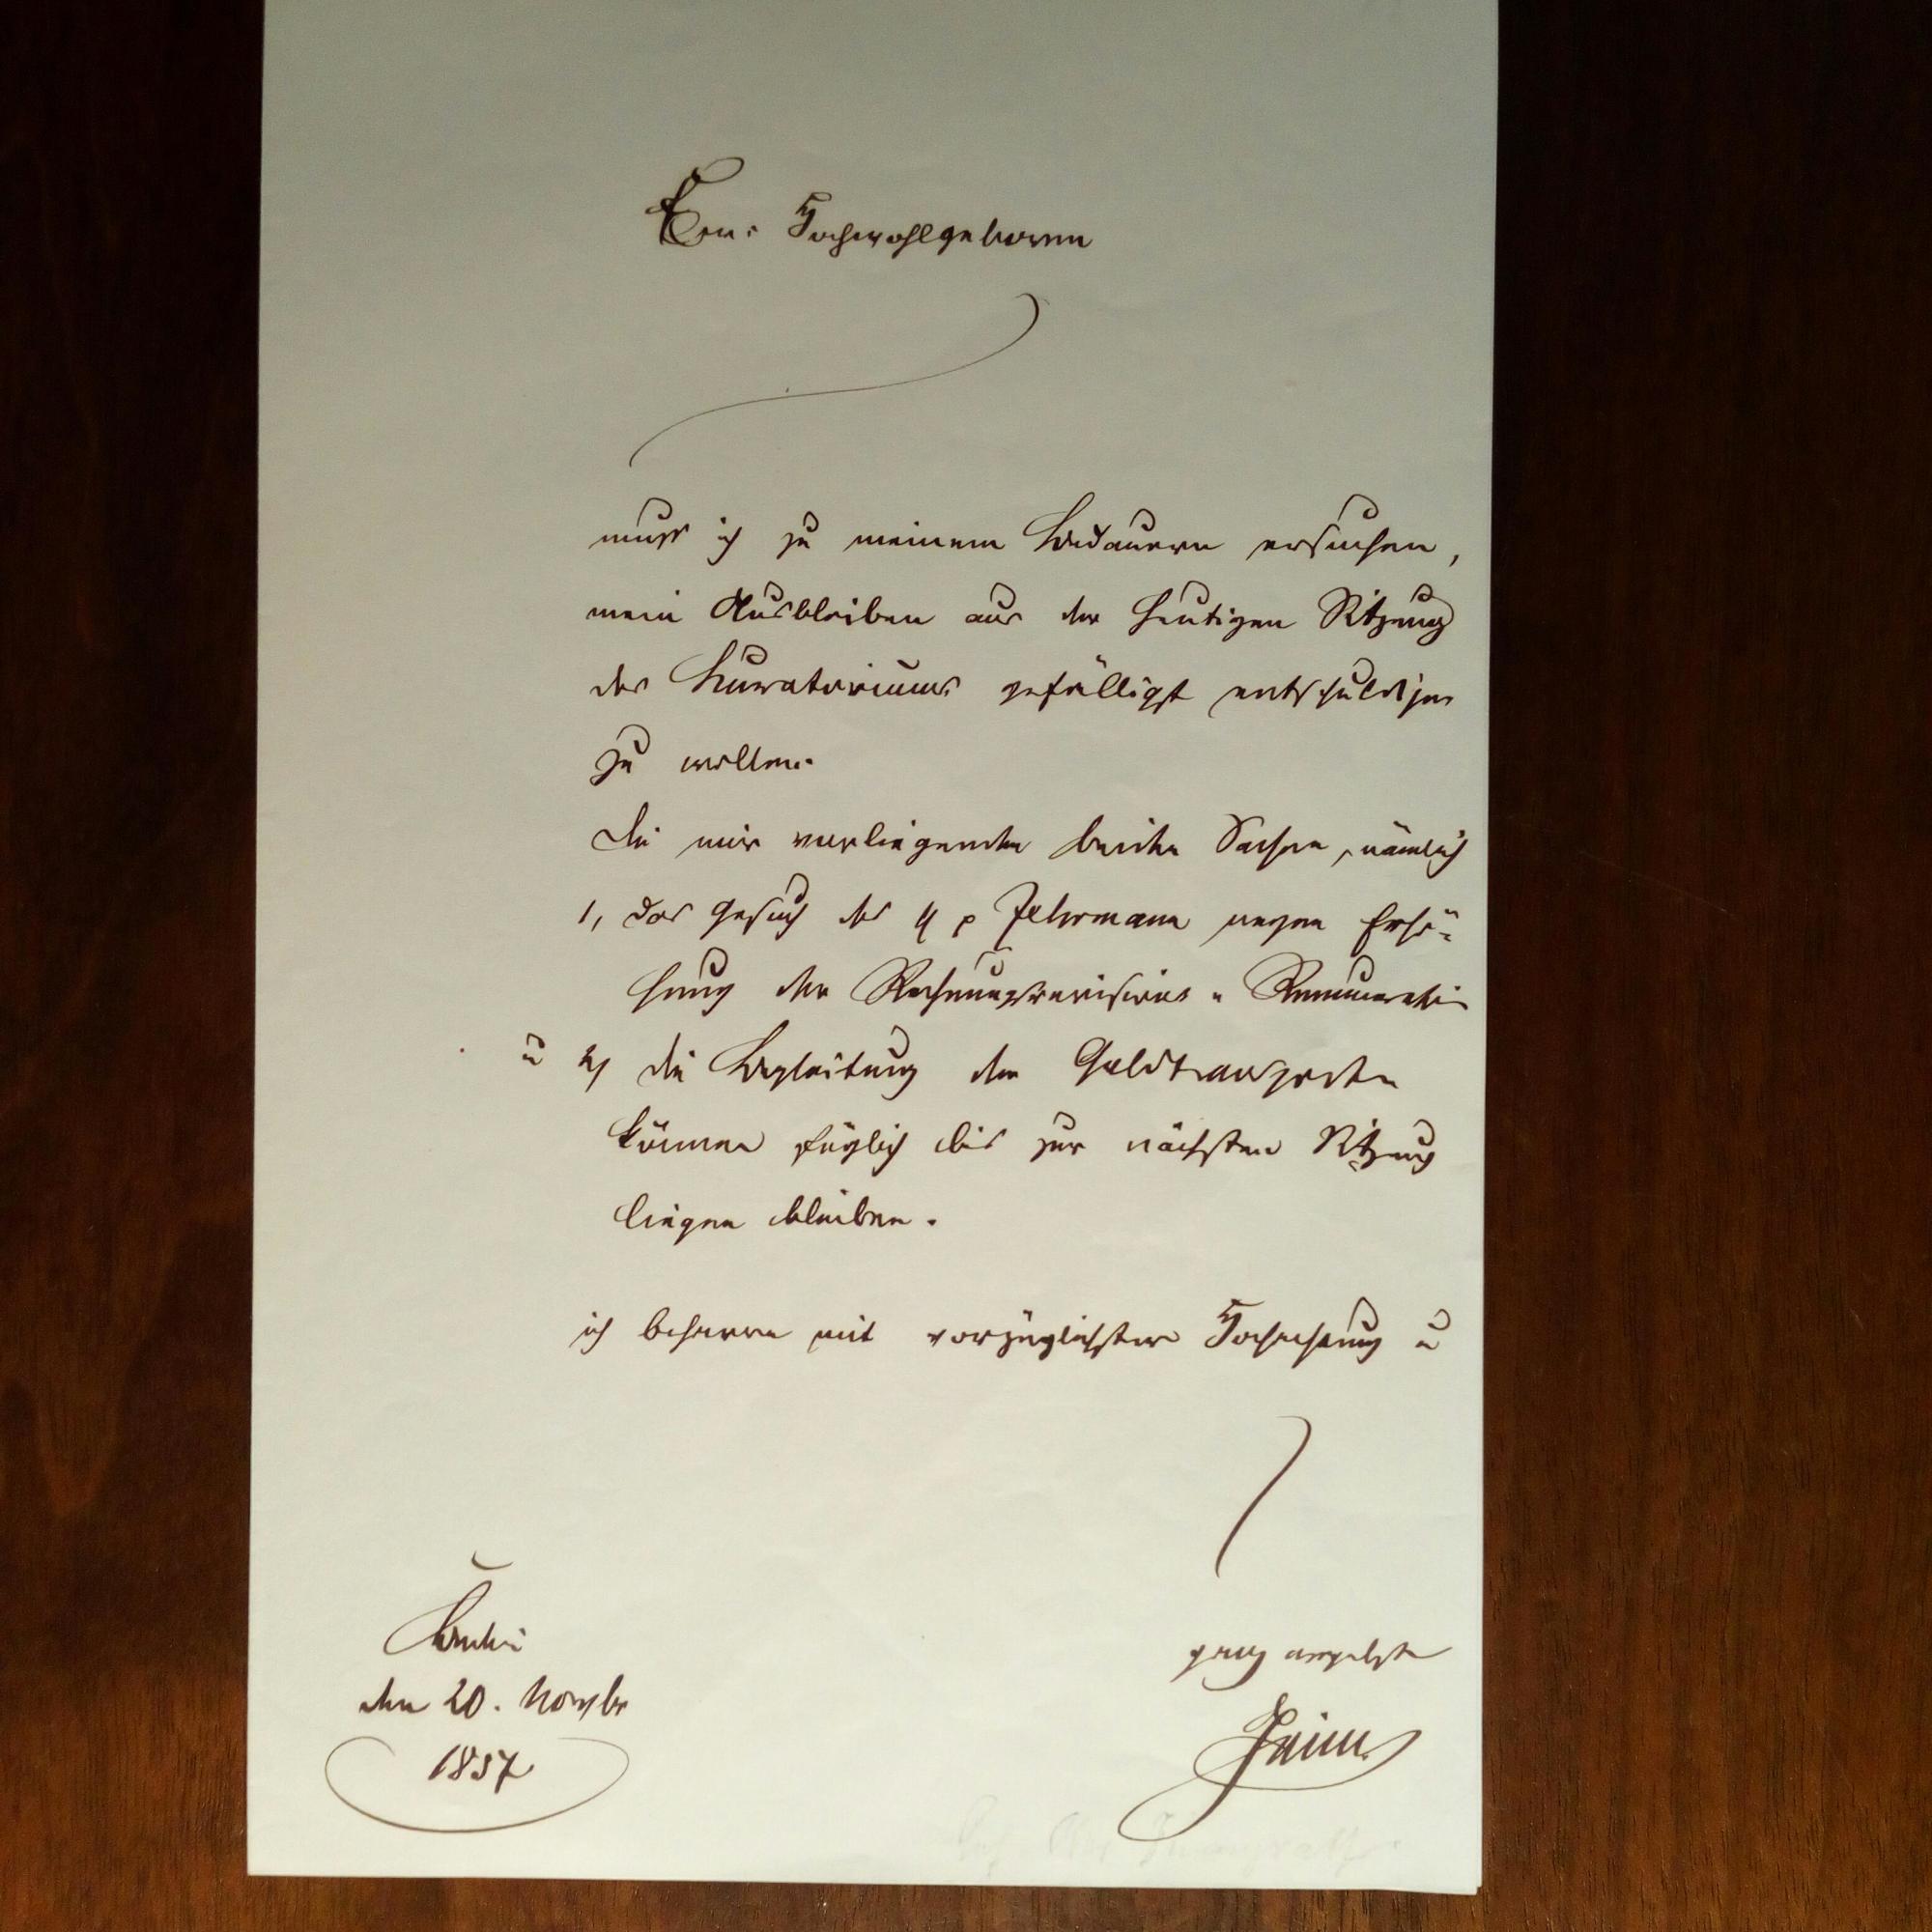 Euer Hochwohlgeboren
muß ich zu meinem Bedauern ersuchen,
mein Ausbleiben aus der heutigen Sitzung
des Kuratoriums gefälligst entschuldigen
zu wollen.
Die mir vorliegenden beiden Sachen, nämlich
1, das Gesuch des p Fehrmann wegen Erhö-
hung der Rechnungsrevisions-Remuneration
u 2, die Begleitung der Geldtransporte
können füglich bis zur nächsten Sitzung
liegen bleiben.
ich beharre mit vorzüglichster Hochachtung u
Berlin
den 20. Novbr
1857
ganz ergebenster